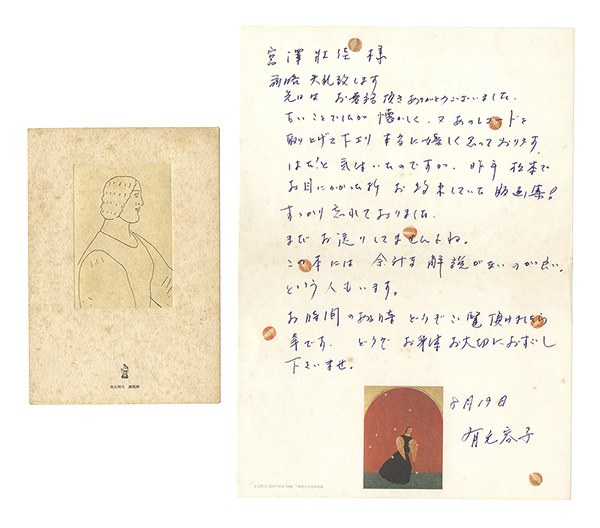 宮澤壯佳様
前略 失礼致します
先日は お電話頂きありがとうございました.
古いことですが 懐かしく、又あのレコードを
取り上げて下さり 本当に嬉しく思っております
はたと気付いたのですが、昨年 松本で
お目にかかった折 お約束していた版画集!
すっかり忘れておりました.
まだ お送りしてませんよね。
この本には 余計な解説がないのが良い,
という人もいます。
お時間のある時 どうぞご覧頂ければ
幸です. どうぞ お身体お大切におすごし
下さいませ.
8月19日
有元容子
有元利夫 銅版画